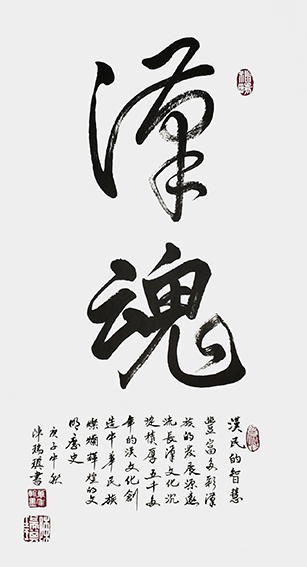 漢
魂
漢民的智慧
豐富多彩漢
族的發展源遠
流長漢文化沉
淀積厚五千多
年的漢文化創
造中華民族
燦爛輝煌的文
明歷史
庚子中秋
陳瑞琪書